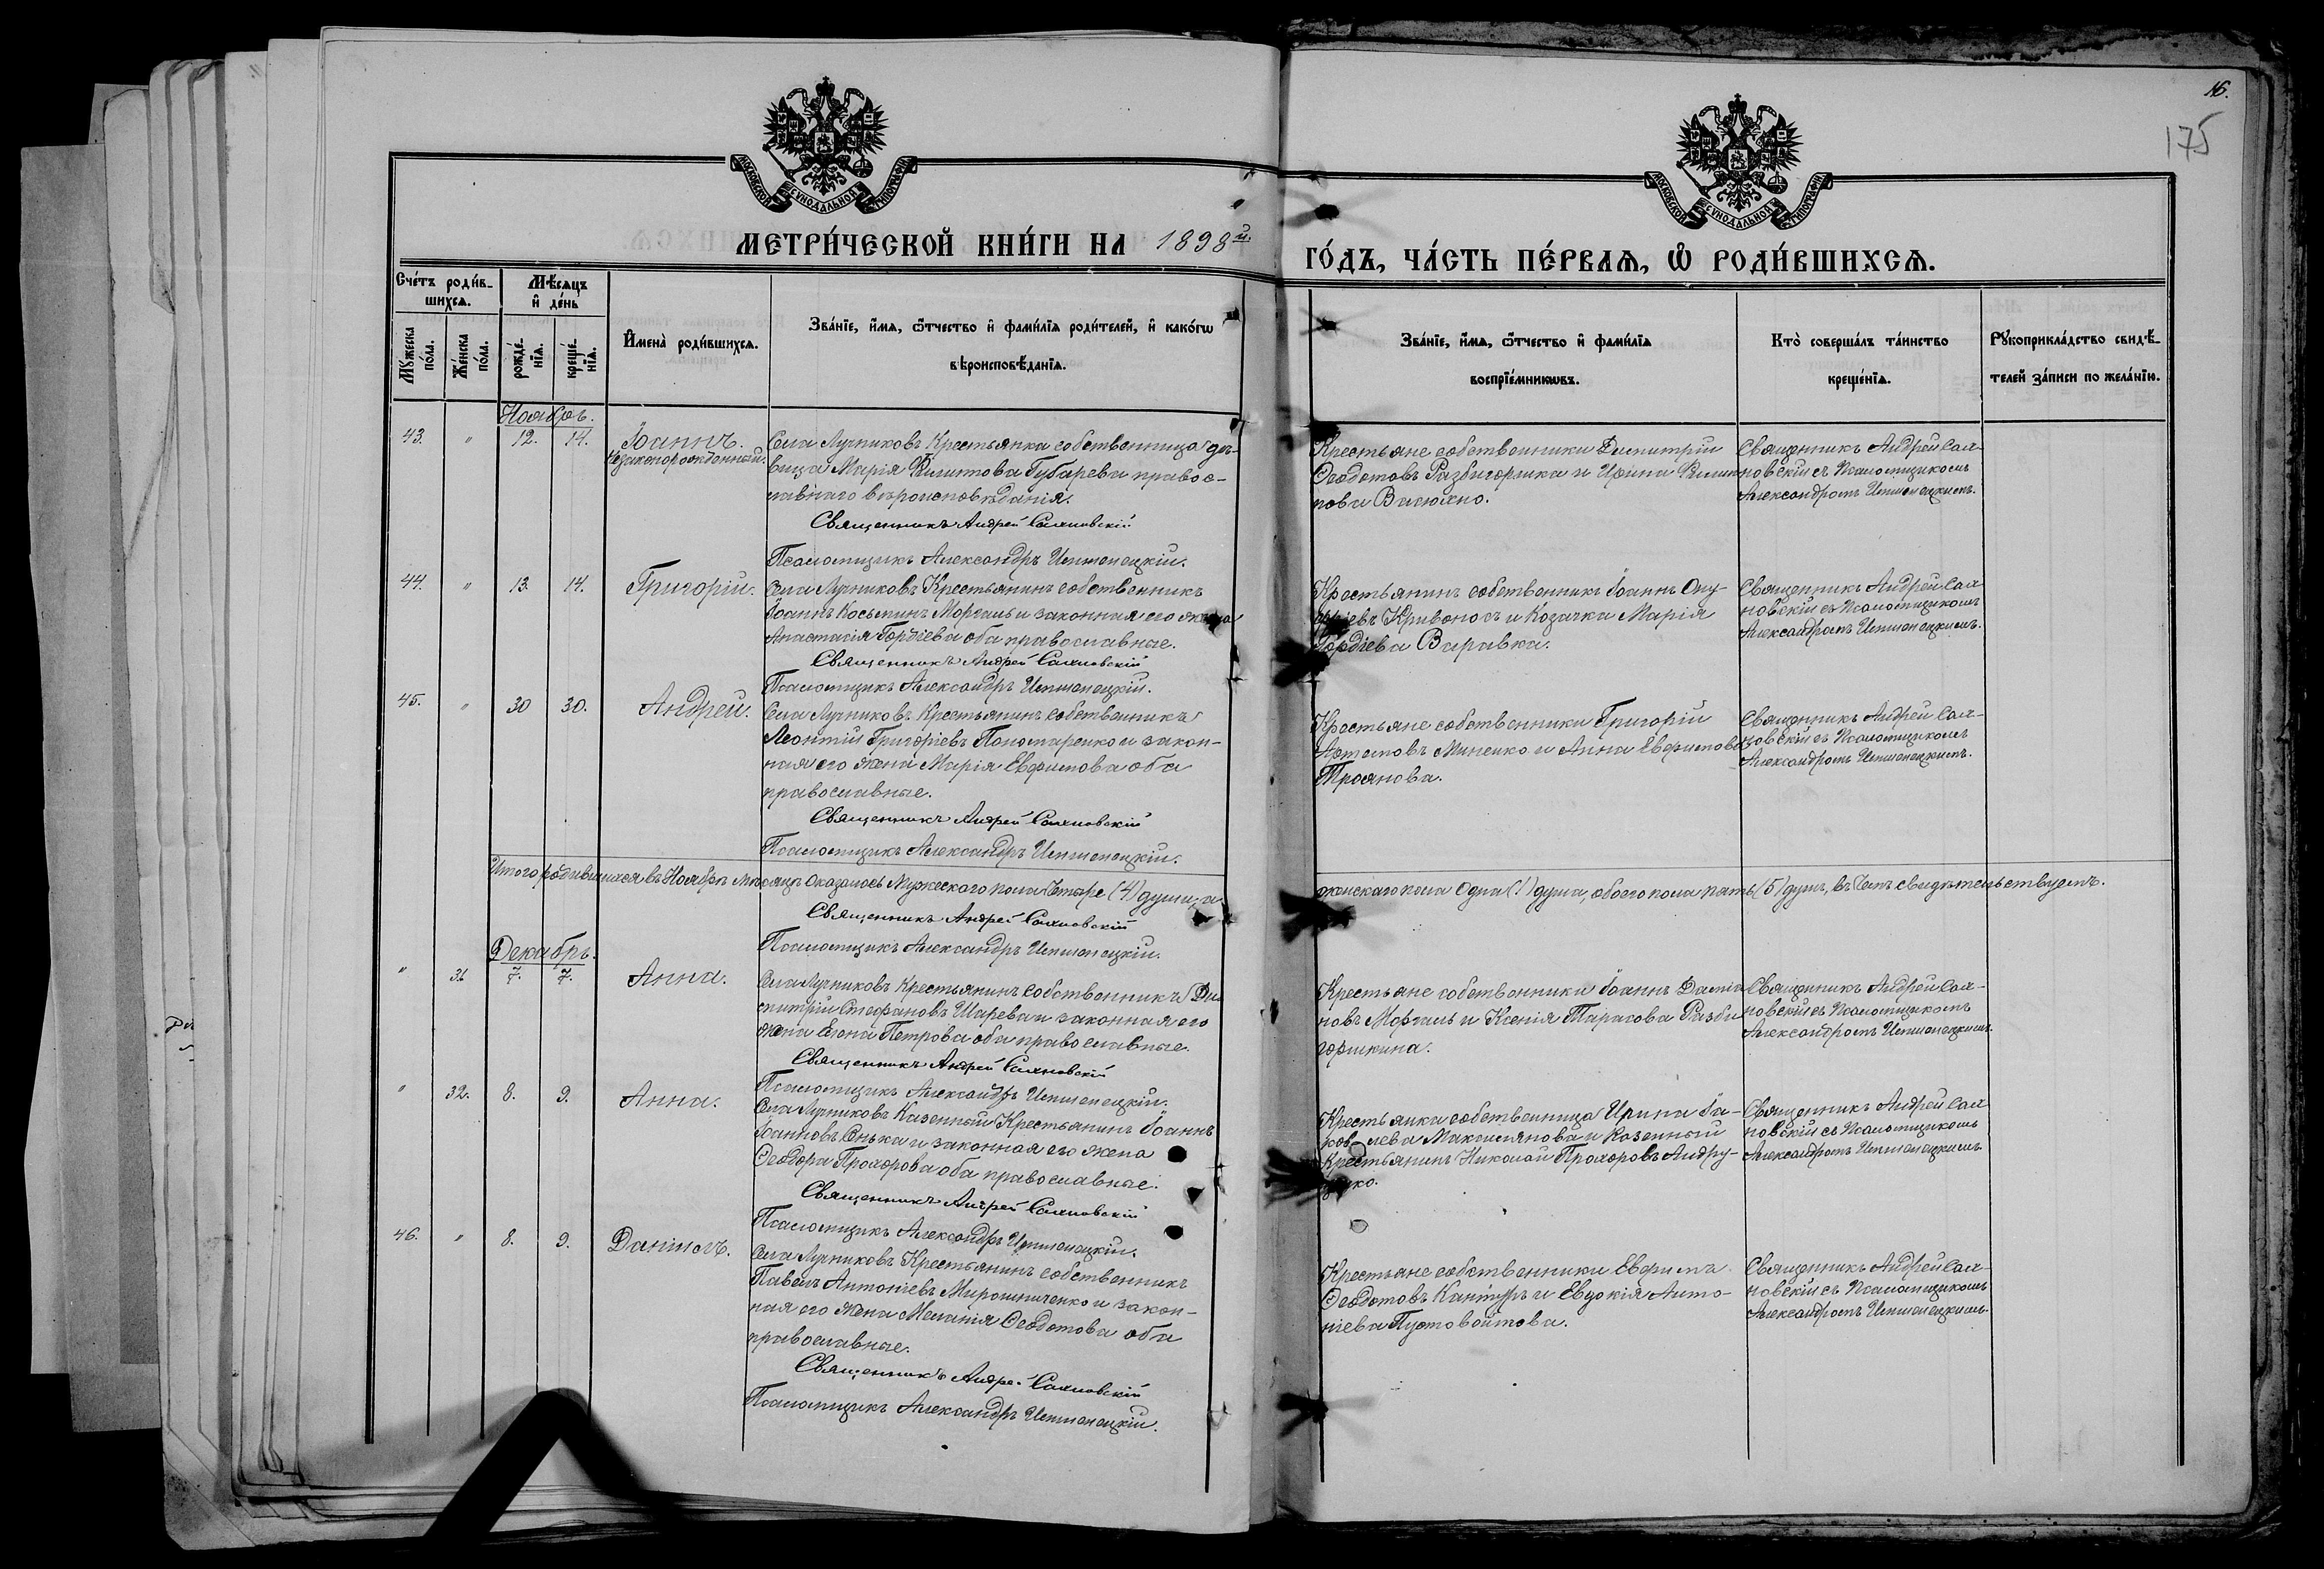 16.
175
МОСКОВСКОЙ СѴНОДАЛЬНОЙ ТИПОГРАФІИ
МОСКОВСКОЙ СѴНОДАЛЬНОЙ ТИПОГРАФІИ
МЕТРИ́ЧЕСКОЙ КНИ́ГИ НА 1898й
ГО́ДЪ, ЧА́СТЬ ПЕ́РВАѦ, Ѡ҆ РОДИ́ВШИХСѦ.
Сче́тъ роди́в-
шихсѧ.
Мꙋ́жеска
по́ла.
Же́нска
по́ла.
Мѣ́сѧцъ
и҆ де́нь
рожде́-
нїѧ.
креще́-
нїѧ.
И҆мена̀ роди́вшихсѧ.
Зва́нїе, и҆́мѧ, ѻ҆́тчество и҆ фами́лїѧ роди́телей, и҆ како́гѡ
вѣроисповѣ́данїѧ.
Зва́нїе, и҆́мѧ, ѻ҆́тчество и҆ фами́лїѧ
воспрїе́мникѡвъ.
Кто̀ соверша́лъ та́инство
креще́нїѧ.
Рꙋкоприкла́дство свидѣ́-
телей за́писи по жела́нїю.
Ноябрь.
43. " 12. 14. Іоаннъ.
Незаконорожденный.
Села Лучниковъ Крестьянка собственница дѣ-
вица Марія Филиппова Губарева правос-
лавнаго вѣроисповѣданія.
Священникъ Андрей Сахновскій
Псаломщикъ Александръ
Крестьяне собственники Димитрій
Ѳеодотовъ Разбигоршка и Ирина Филип
пова Васюхно.
Священникъ Андрей Сах-
новскій съ Псаломщикомъ
Александромъ
44. " 13. 14. Григорій.
Села Лучниковъ Крестьянинъ собственникъ
Іоаннъ Косьминъ Моргаль и законная его жена
Анастасія Гордіева оба православные.
Священникъ Андрей Сахновскій
Псаломщикъ Александръ
Крестьянинъ собственникъ Іоаннъ Ону-
фріевъ Кривоносъ и Козачка Марія
Гордіева Варавка.
Священникъ Андрей Сах-
новскій съ Псаломщикомъ
Александромъ
45. " 30 30. Андрей.
Села Лучниковъ Крестьянинъ собственникъ
Леонтій Григоріевъ Пономаренко и закон-
ная его жена Марія Евфимова оба
православные.
Священникъ Андрей Сахновскій
Псаломщикъ Александръ
Крестьяне собственники Григорій
Артемовъ Миненко и Анна Евфимова
Троянова.
Священникъ Андрей Сах-
новскій съ Псаломщикомъ
Александромъ
Итого родившихся въ Ноябрѣ мѣсяцѣ оказалось Мужескаго пола Четыре (4) души, а
женскаго пола Одна (1) душа, обоего пола пять (5) душъ, въ чемъ свидѣтельствуемъ.
Священникъ Андрей Сахновскій
Псаломщикъ Александръ
Декабрь.
" 31 7. 7. Анна.
Села Лучниковъ Крестьянинъ собственникъ Ди-
митрій Стефановъ Шарева и законная его
жена Елена Петрова оба православные.
Священникъ Андрей Сахновскій
Псаломщикъ Александръ
Крестьяне собственники Іоаннъ Даміа
новъ Моргаль и Ксенія Тарасова Разби
горшкина.
Священникъ Андрей Сах-
новскій съ Псаломщикомъ
Александромъ
" 32. 8. 9. Анна.
Села Лучниковъ Казенный Крестьянинъ Іоаннъ
Іоанновъ Сенька и законная его жена
Ѳеодора Прохорова оба православные.
Священникъ Андрей Сахновскій
Псаломщикъ Александръ
Крестьянка собственница Ирина Іа-
ковлева Максимянова и Казенный
Крестьянинъ Николай Прохоровъ Андру-
Священникъ Андрей Сах-
новскій съ Псаломщикомъ
Александромъ
46. " 8. 9. Даніилъ.
Села Лучниковъ Крестьянинъ собственникъ
Павелъ Антоніевъ Мирошниченко и закон-
ная его жена Меланія Ѳеодотова оба
православные.
Священникъ Андрей Сахновскій
Псаломщикъ Александръ
Крестьяне собственники Евфимъ
Ѳеодотовъ Кантуръ и Евдокія Анто-
ніева Пустовойтова.
Священникъ Андрей Сах-
новскій съ Псаломщикомъ
Александромъ